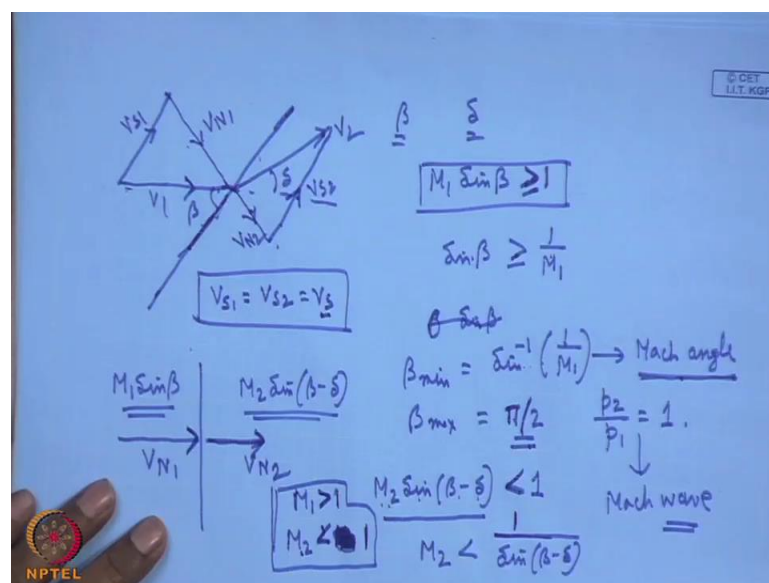 © CET
I.I.T. KGP
VS1
VN1
V1
β
V2
δ
VS2
VN2
β δ
M1 Sin β ≥ 1
Sin β ≥ 1/M1
VS1 = VS2 = VS
βmin = Sin⁻¹(1/M1) → Mach angle
βmax = π/2
p2/p1 = 1.
Mach wave
M1 Sin β
M2 Sin(β-δ)
VN1
VN2
M1 > 1
M2 < 1
M2 Sin(β-δ) < 1
M2 < 1/Sin(β-δ)
NPTEL